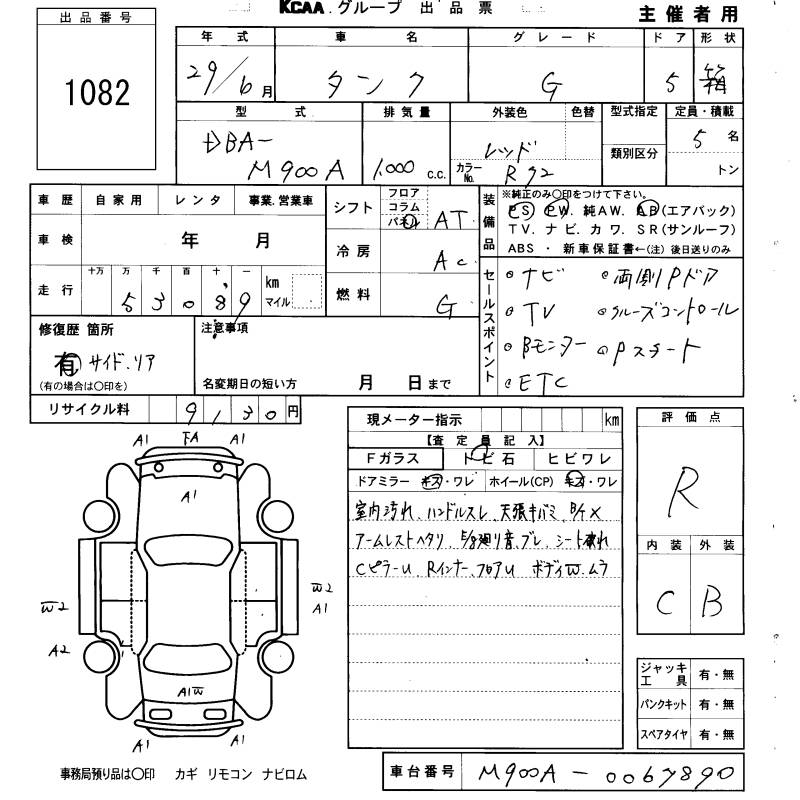 KCAA.グループ 出品票
主催者用
出品番号
1082
年式 車名 グレード ドア 形状
29/6月 タンク G 5 箱
型式 排気量 外装色 色替 型式指定 定員・積載
DBA-
M900A 1,000 c.c. レッド カラーNo. R72 類別区分 5名
トン
車歴 自家用 レンタ 事業.営業車
車検 年 月
走行 十万 万 千 百 十 一 km マイル
53089
シフト フロア コラム パネル AT
冷房 Ac
燃料 G
装備品 ※純正のみ〇印をつけて下さい。
PS PW. 純AW. AB(エアバック)
TV. ナビ. カワ. SR(サンルーフ)
ABS ・ 新車保証書←(注) 後日送りのみ
セールスポイント
ナビ 両側Pドア
TV クルーズコントロール
Bモニター Pスタート
ETC
修復歴 箇所
有 サイド.リア
(有の場合は〇印を)
注意事項
名変期日の短い方 月 日まで
リサイクル料 9130円
現メーター指示 km
【査定員記入】
Fガラス トビ石 ヒビワレ
ドアミラー キズ・ワレ ホイール(CP) キズ・ワレ
室内汚れ、ハンドルスレ、天張キバミ、
アームレストヘタリ、 廻り音、ブレ、シート
CピラーU、Rインナー、フロアU ボディW.ムラ
評価点
R
内装 外装
C B
ジャッキ工具 有・無
パンクキット 有・無
スペアタイヤ 有・無
A1 FA A1
A1
W2 W2
A1
A2
A1W
A1 A1
事務局預り品は〇印 カギ リモコン ナビロム
車台番号 M900A-0067890